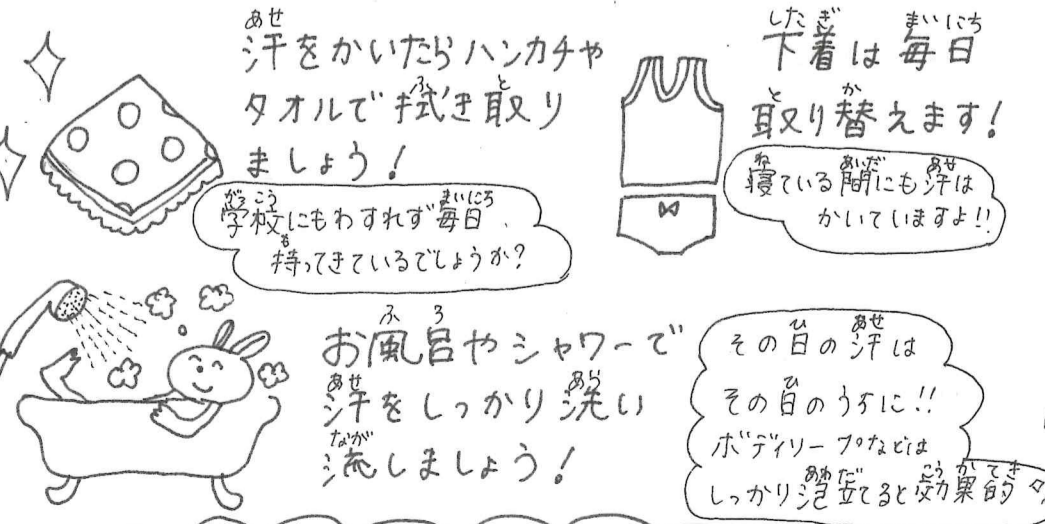 汗をかいたらハンカチや
タオルで拭き取り
ましょう!
学校にもわすれず毎日
持ってきているでしょうか?
下着は毎日
取り替えます!
寝ている間にも汗は
かいていますよ!!
お風呂やシャワーで
汗をしっかり洗い
流しましょう!
その日の汗は
その日のうちに!!
ボディソープなどは
しっかり泡立てると効果的